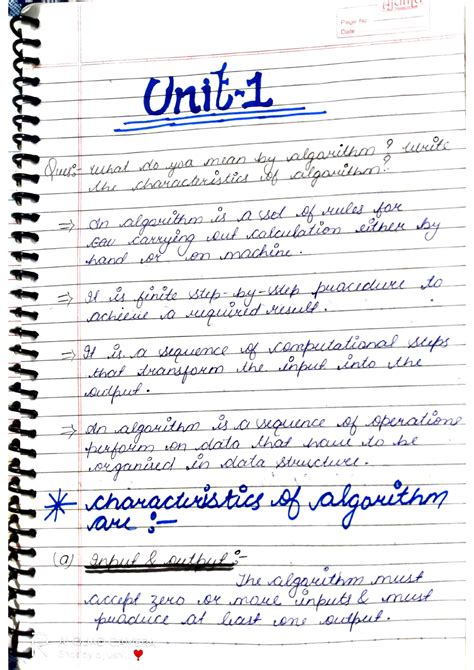 Page No.
Date
Unit-1
Ques:- What do you mean by algorithm? Write
the characteristics of algorithm?
⇒ An algorithm is a set of rules for
carrying out calculation either by
hand or on machine.
⇒ It is finite step-by-step procedure to
achieve a required result.
⇒ It is a sequence of computational steps
that transform the input into the
output.
⇒ An algorithm is a sequence of operations
perform on data that have to be
organised in data structure.
* characteristics of algorithm
are :-
(a) Input & output :-
The algorithm must
accept zero or more inputs & must
produce at least one output.